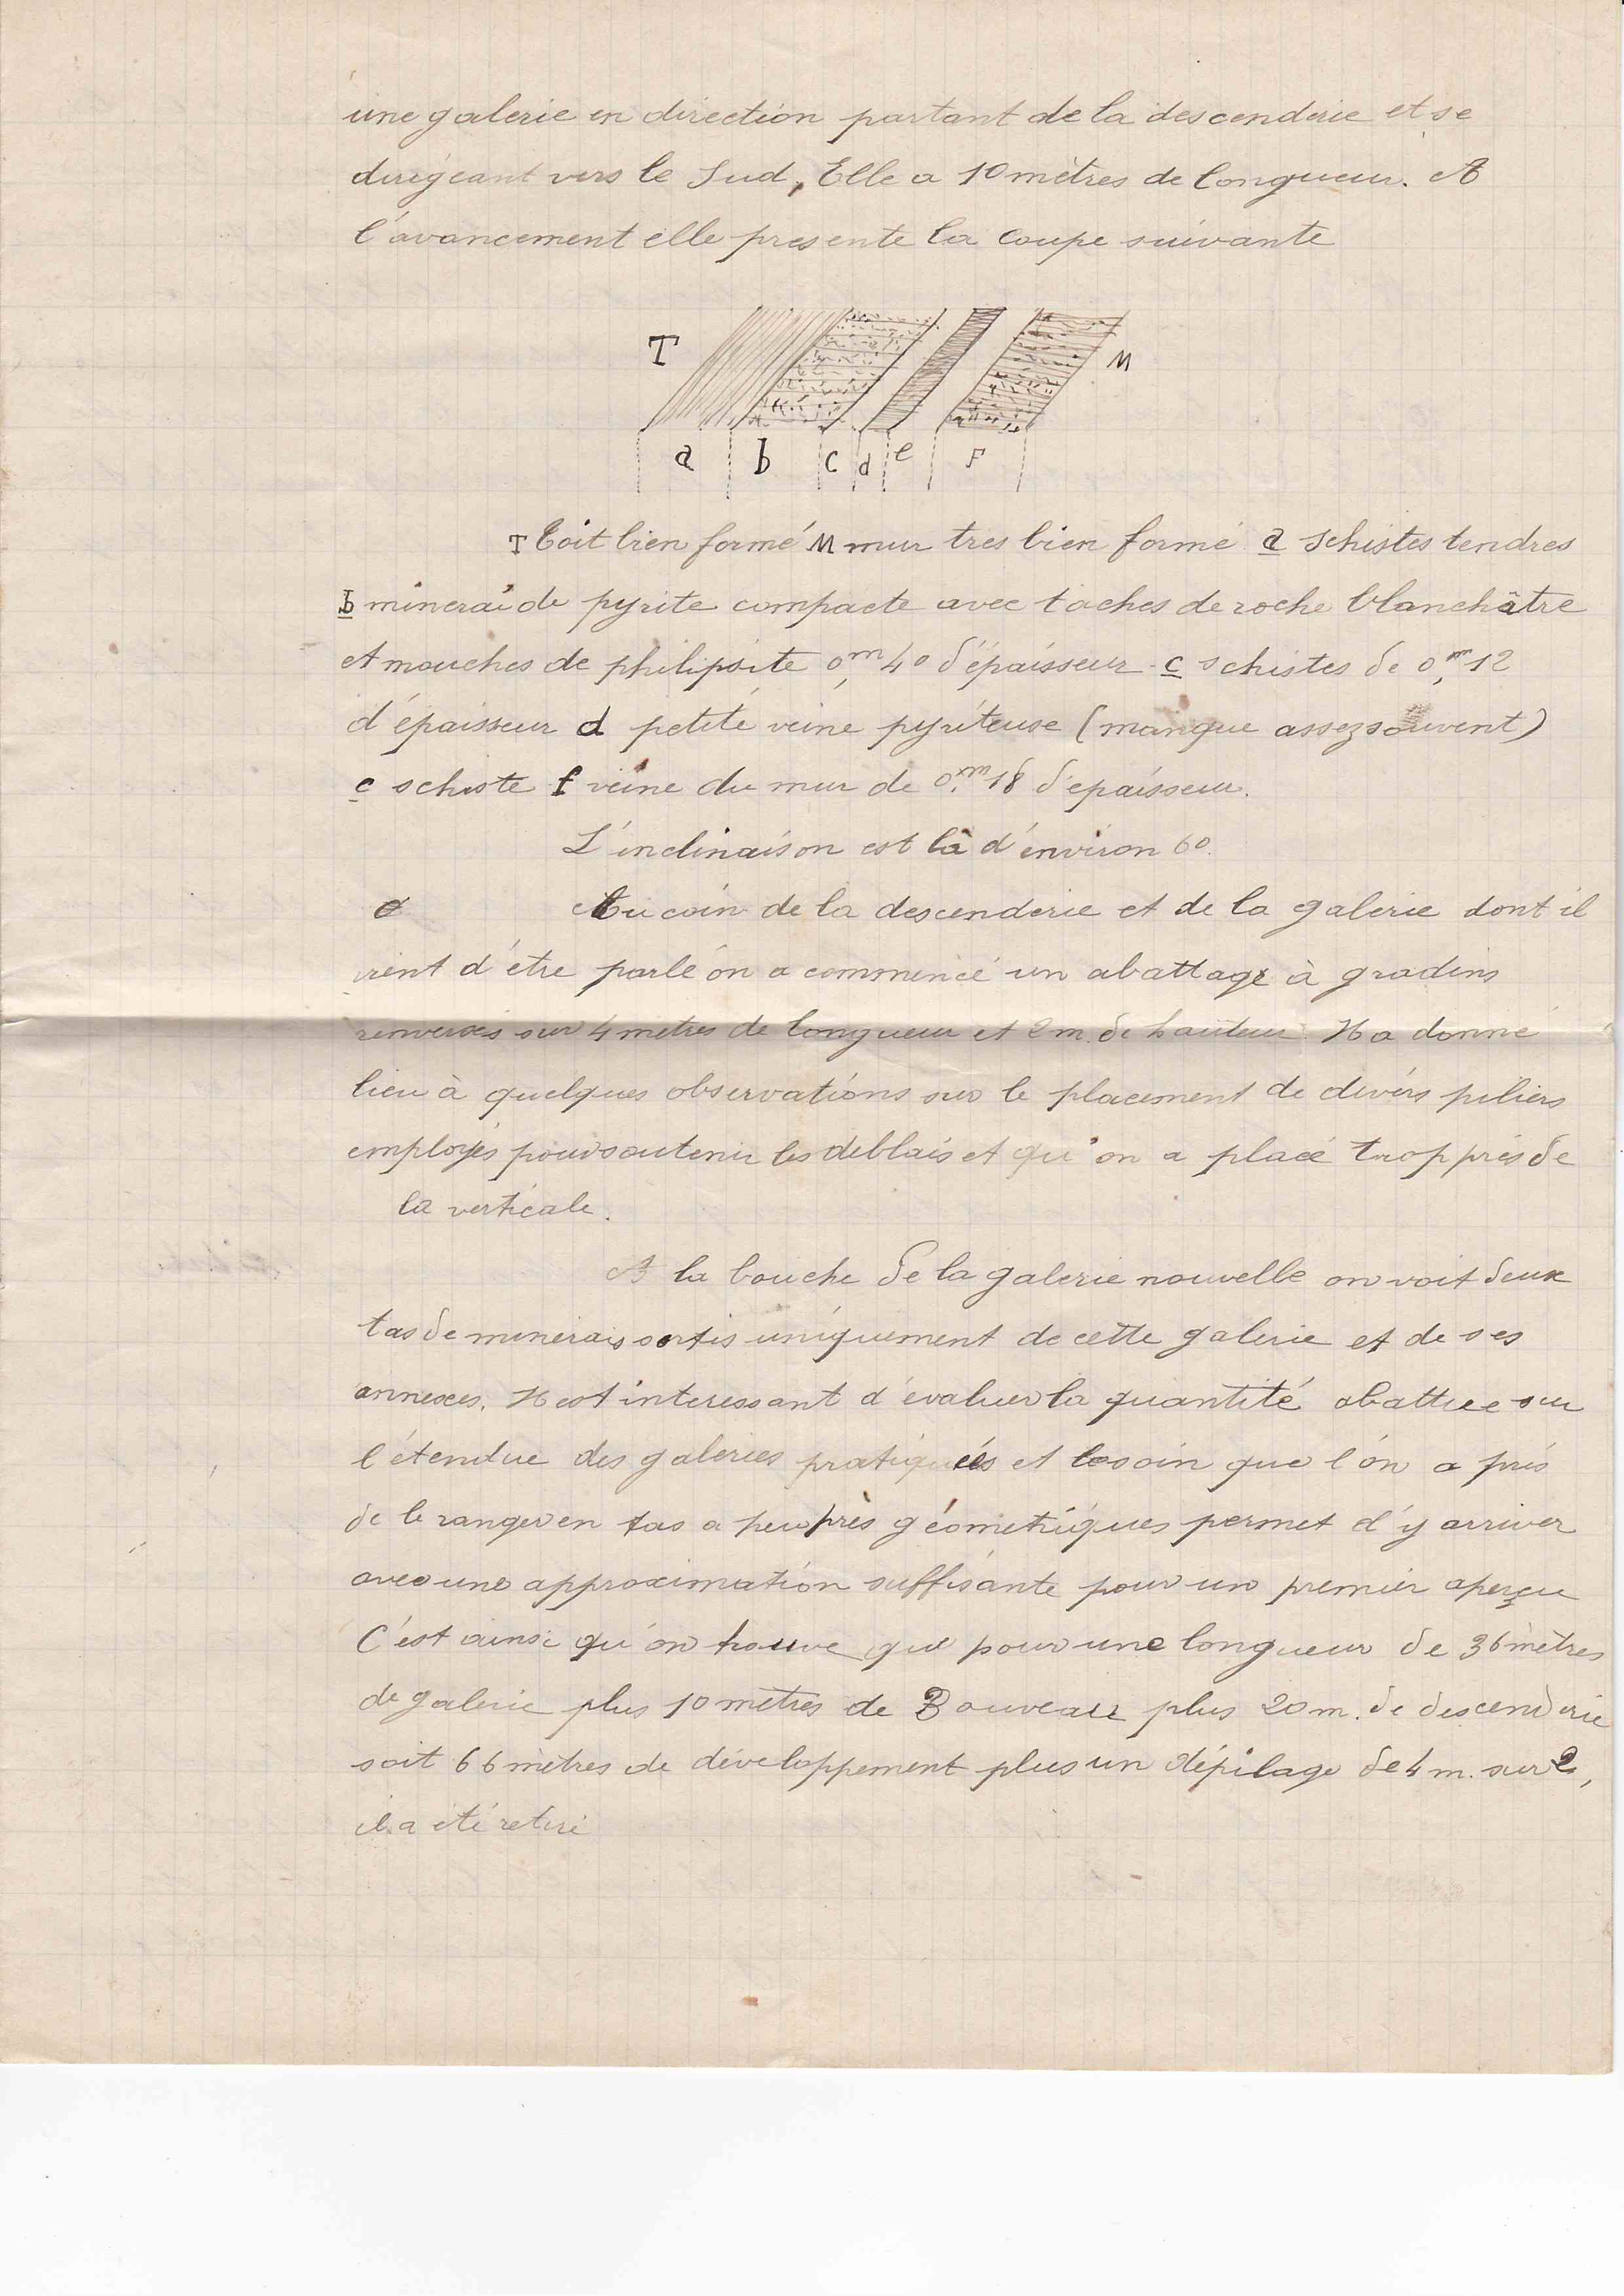 une galerie en direction partant de la descenderie et se
dirigeant vers le Sud, Elle a 10 mètres de longueur. A
l'avancement elle presente la coupe suivante
T M
a b c d e F
T toit bien formé M mur tres bien formé a schistes tendres
b minerai de pyrite compacte avec taches de roche blanchâtre
et mouches de philipsite 0,m40 d'épaisseur - c schistes de 0,m12
d'épaisseur d petite veine pyriteuse (manque assez souvent)
e schiste f veine du mur de 0,m18 d'epaisseur.
L'inclinaison est là d'environ 60.
Au coin de la descenderie et de la galerie dont il
vient d'être parlé on a commencé un abattage à gradins
renversés sur 4 metres de longueur et 2 m. de hauteur. Il a donné
lieu à quelques observations sur le placement de divers piliers
employés pour soutenir les deblais et qu'on a placé trop près de
la verticale.
A la bouche de la galerie nouvelle on voit deux
tas de minerais sortis uniquement de cette galerie et de ses
annexes. Il est interessant d'évaluer la quantité abattue sur
l'étendue des galeries pratiquées et le soin que l'on a pris
de le ranger en tas a peu près géometriques permet d'y arriver
avec une approximation suffisante pour un premier aperçu
C'est ainsi qu'on trouve que pour une longueur de 36 mètres
de galerie plus 10 mètres de Bouveau plus 20 m. de descenderie
soit 66 mètres de développement plus un dépilage de 4 m. sur 2,
il a été retiré